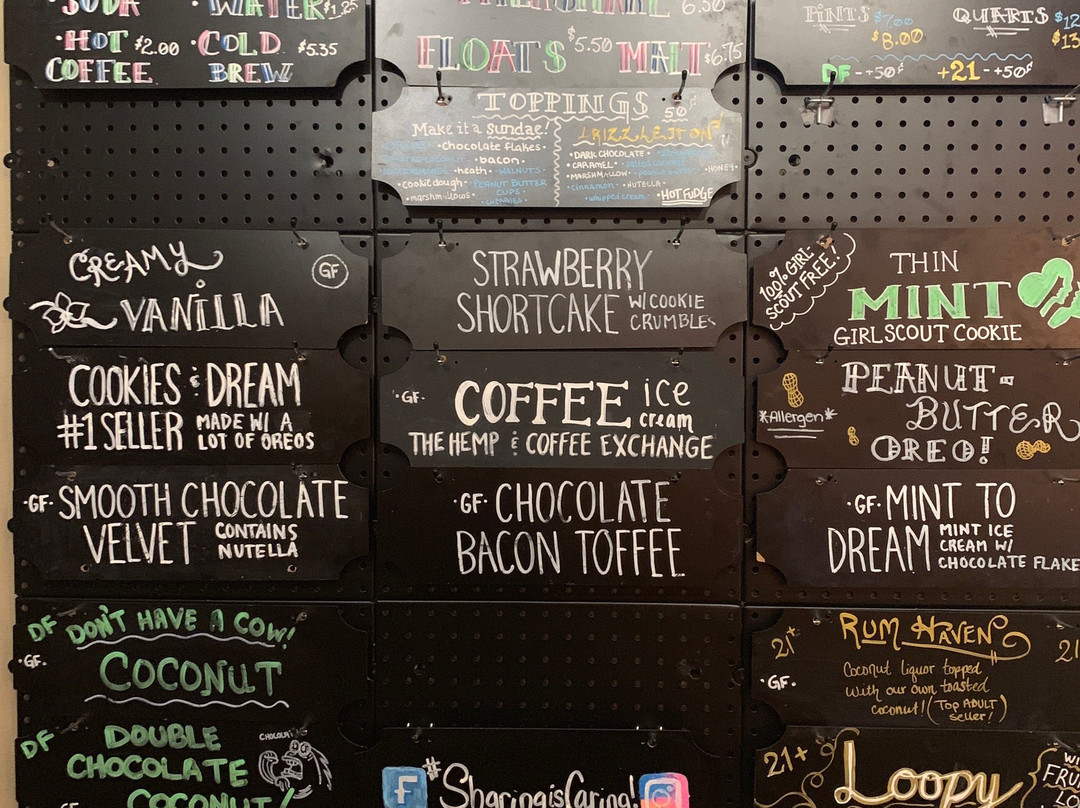 SODA · WATER $1.25
· HOT $2.00 · COLD $5.35
COFFEE BREW
MILKSHAKE 6.50
FLOATS $5.50 MALT $6.75
PINTS $7.00 QUARTS $12
$8.00 $13
DF - +50¢ +21 - +50¢
TOPPINGS 50¢
Make it a Sundae!
· chocolate flakes ·
· bacon ·
· heath · WALNUTS ·
· cookie dough · PEANUT BUTTER
CUPS
· marshmallows · · CHERRIES ·
DRIZZLE IT ON
· DARK CHOCOLATE ·
· CARAMEL ·
· MARSHMALLOW · peanut butter · HONEY ·
cinnamon · · NUTELLA ·
· whipped cream · · HOT FUDGE
CREAMY GF
VANILLA
STRAWBERRY
SHORTCAKE W/COOKIE
CRUMBLES
100% GIRL-
SCOUT FREE!
THIN
MINT
GIRLSCOUT COOKIE
COOKIES & DREAM
#1 SELLER MADE W/ A
LOT OF OREOS
· GF · COFFEE ice
cream
THE HEMP & COFFEE EXCHANGE
*Allergen*
PEANUT-
BUTTER
OREO!
· GF · SMOOTH CHOCOLATE
VELVET CONTAINS
NUTELLA
· GF · CHOCOLATE
BACON TOFFEE
· GF · MINT TO
DREAM MINT ICE
CREAM W/
CHOCOLATE FLAKE
DF DON'T HAVE A COW!
· GF · COCONUT
21+ RUM HAVEN 21
· GF · Coconut liquor topped
with our own toasted
coconut! (TOP ADULT
seller!)
DF DOUBLE
CHOCOLATE
COCONUT!
GF
#SharingisCaring!
21+ Loopy
WI
FRU
LO